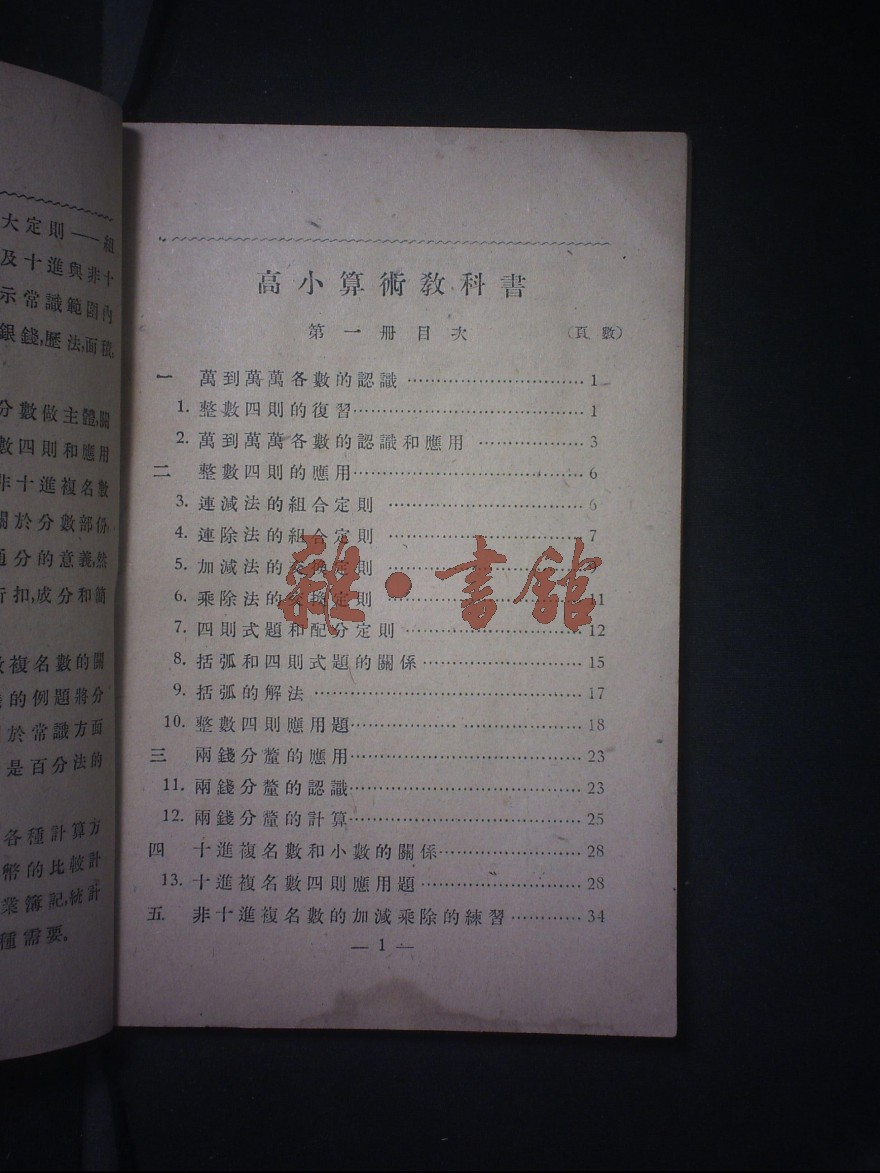 大定則——組
及十進與非十
示常識範圍內
銀錢,歷法,面積,
分數做主體,關
數四則和應用
非十進複名數
關於分數部份,
通分的意義,然
折扣,成分和簡
複名數的關
的例題將分
於常識方面
是百分法的
各種計算方
幣的比較計
業簿記,統計
種需要。
高小算術教科書
第一冊目次 (頁數)
一 萬到萬萬各數的認識……………………………1
1. 整數四則的復習……………………………………1
2. 萬到萬萬各數的認識和應用 …………………3
二 整數四則的應用……………………………………6
3. 連減法的組合定則 ………………………………6
4. 連除法的組合定則 ………………………………7
5. 加減法的交換定則 ………………………………9
6. 乘除法的交換定則 ………………………………11
7. 四則式題和配分定則……………………………12
8. 括弧和四則式題的關係…………………………15
9. 括弧的解法…………………………………………17
10. 整數四則應用題……………………………………18
三 兩錢分釐的應用……………………………………23
11. 兩錢分釐的認識……………………………………23
12. 兩錢分釐的計算……………………………………25
四 十進複名數和小數的關係………………………28
13. 十進複名數四則應用題…………………………28
五 非十進複名數的加減乘除的練習…………34
— 1 —
雜·書館